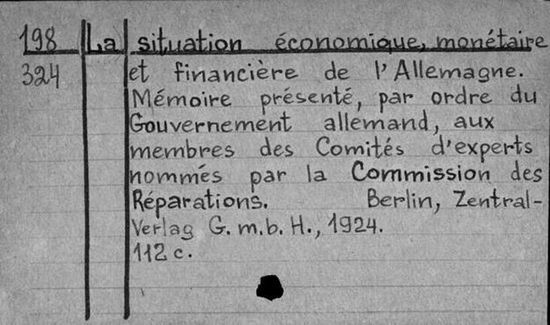 198 La situation économique, monétaire
324 et financière de l'Allemagne.
Mémoire présenté, par ordre du
Gouvernement allemand, aux
membres des Comités d'experts
nommés par la Commission des
Réparations. Berlin, Zentral-
Verlag G.m.b.H., 1924.
112 c.